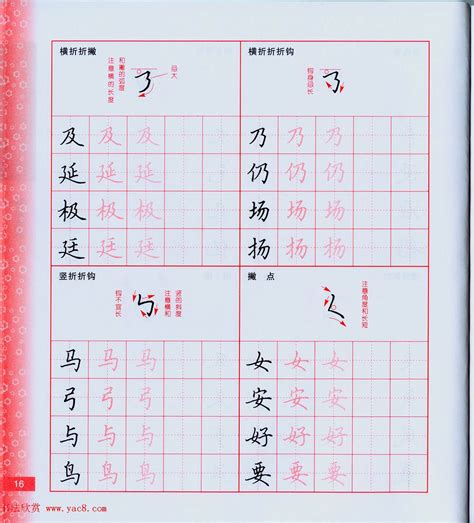 横折折撇
注意横的长度
和撇的弧度
及 及 及
延 延 延
极 极 极
廷 廷 廷
横折折折钩
乃 乃 乃
仍 仍 仍
场 场 场
扬 扬 扬
竖折折钩
钩不宜长
注意横和
竖的斜度
马 马 马
弓 弓 弓
与 与 与
鸟 鸟 鸟
撇 点
注意角度和长短
女 女 女
安 安 安
好 好 好
要 要 要
16
书法欣赏 www.yac8.com